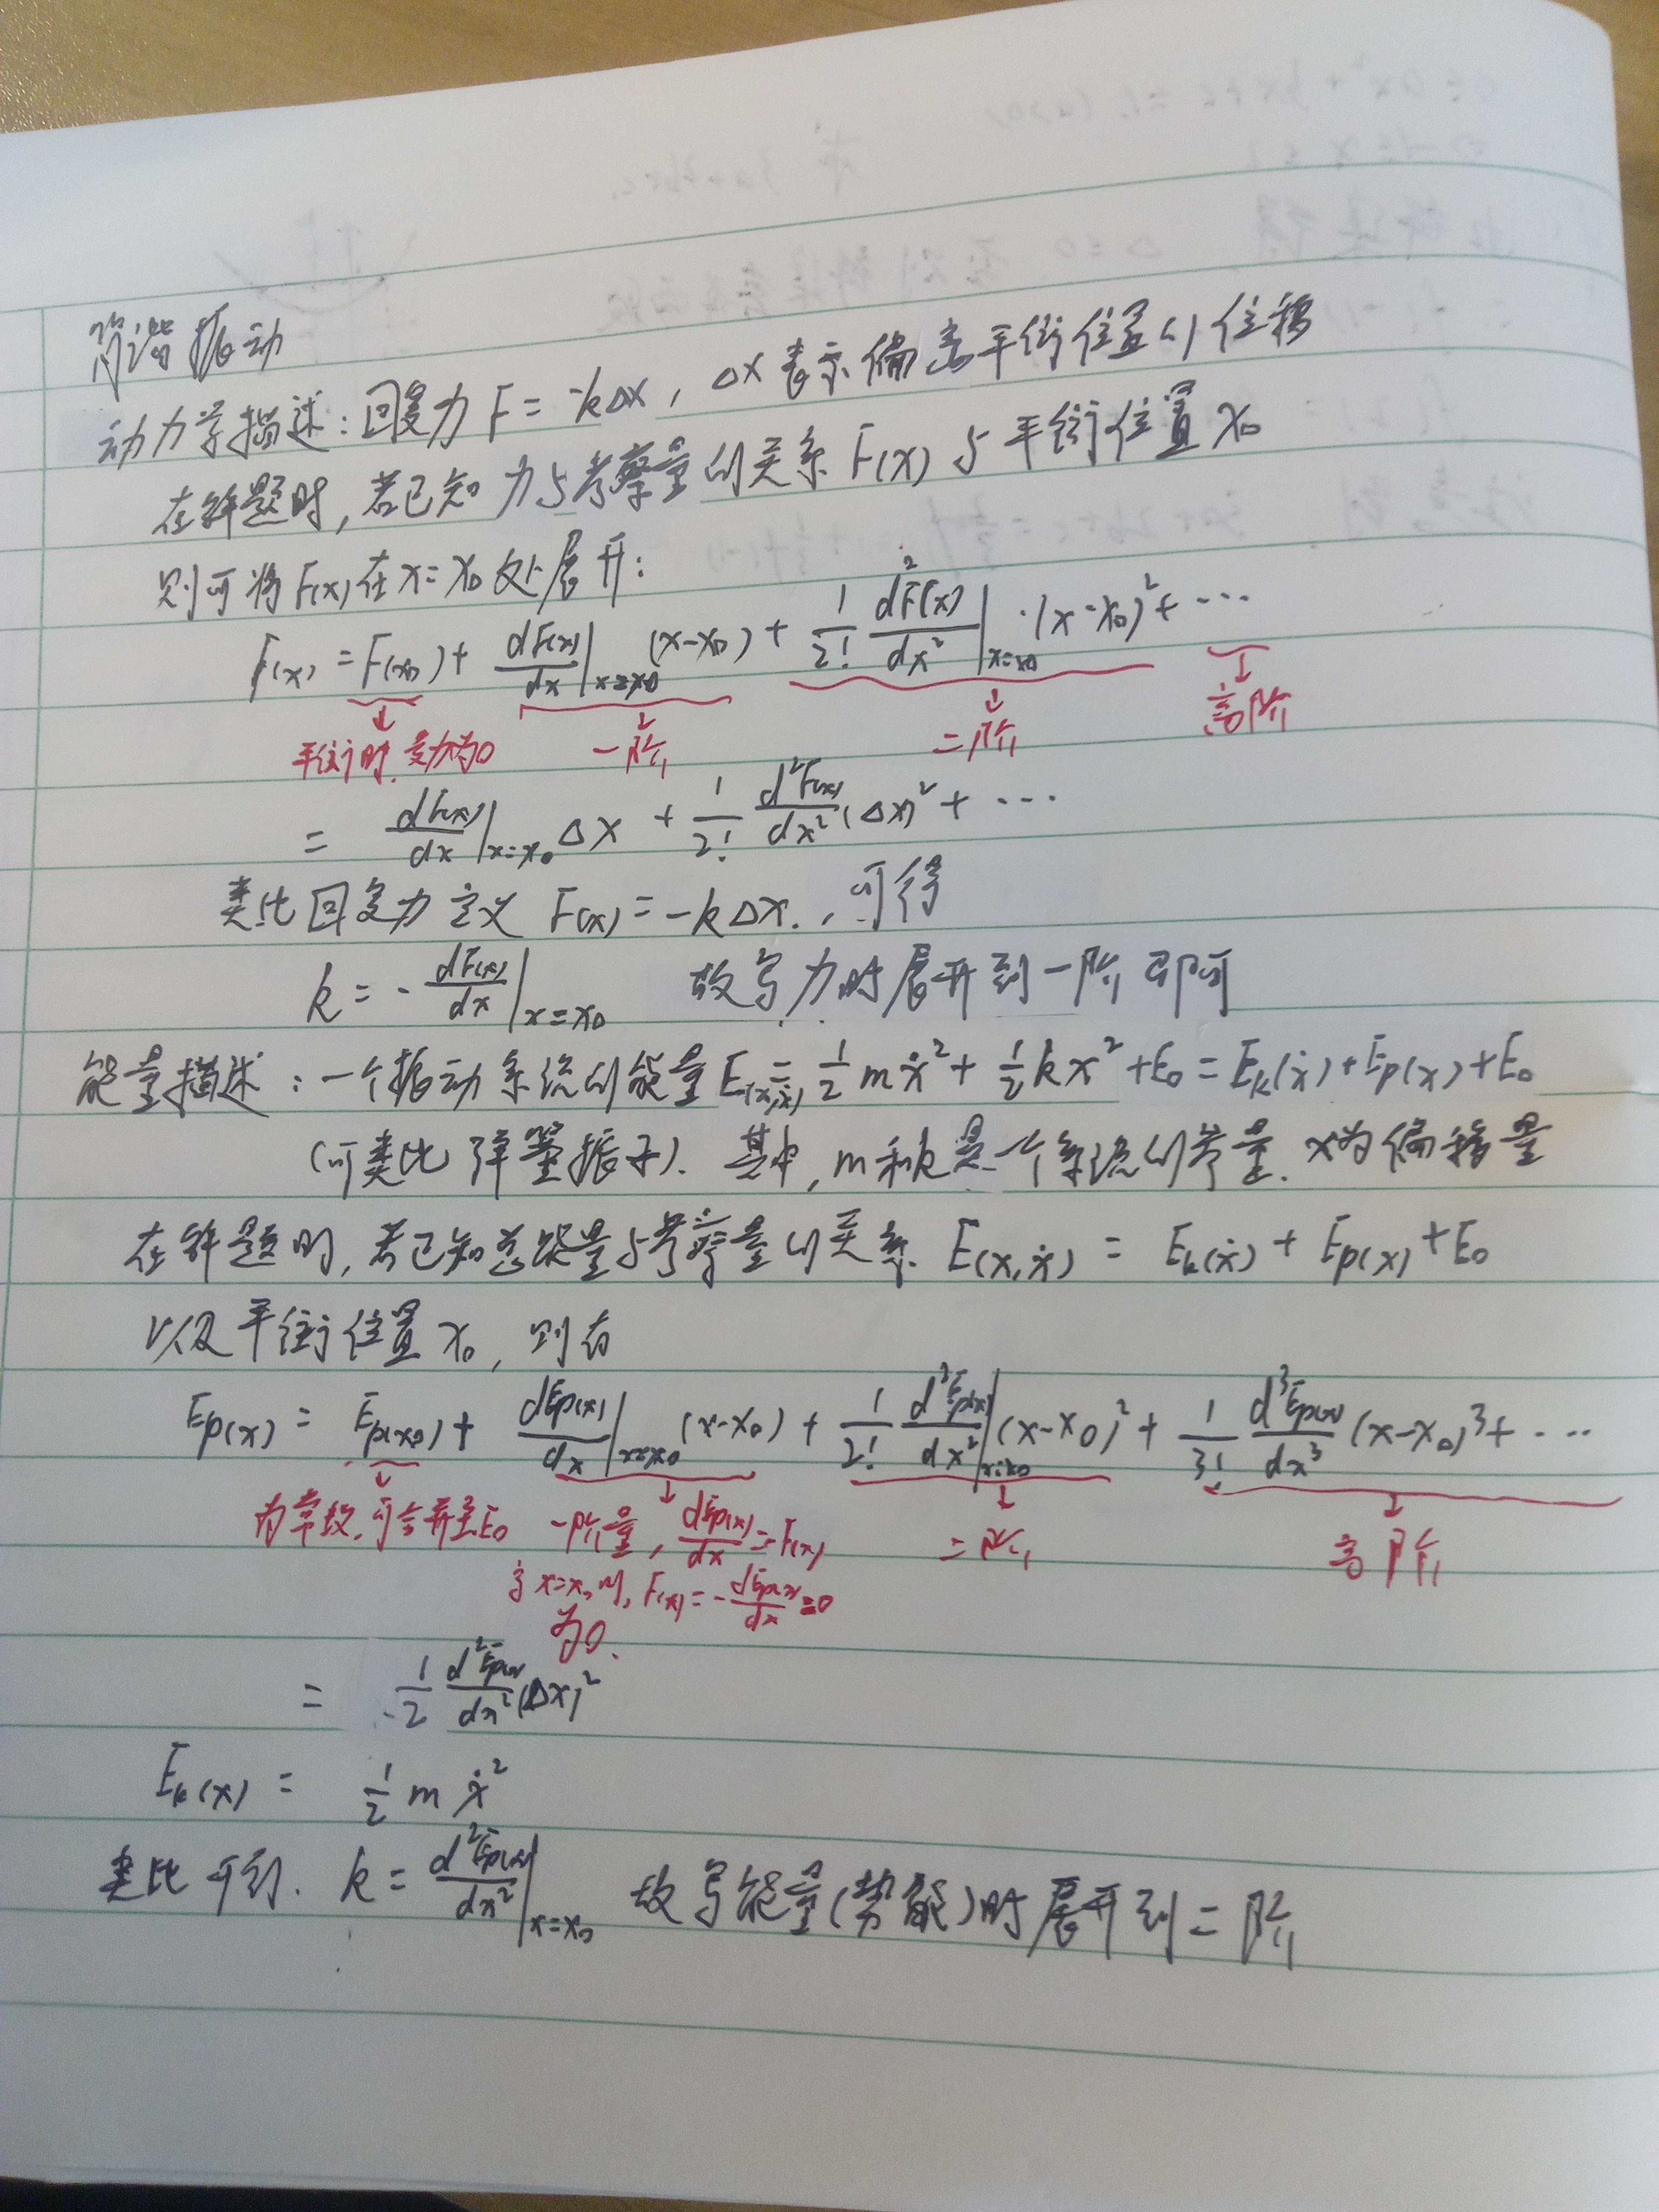 简谐振动
动力学描述：回复力 F = -kΔx，Δx表示偏离平衡位置的位移
在解题时，若已知力与考察量的关系 F(x) 与平衡位置 x₀
则可将F(x)在x=x₀处展开：
F(x) = F(x₀) + dF(x)/dx|x=x₀ (x-x₀) + 1/2! d²F(x)/dx²|x=x₀ ·(x-x₀)² + ···
平衡时,受力为0 一阶 二阶 高阶
= dF(x)/dx|x=x₀ Δx + 1/2! d²F(x)/dx² (Δx)² + ···
类比回复力定义 F(x) = -kΔx.，可得
k = - dF(x)/dx|x=x₀ 故写力时展开到一阶即可
能量描述：一个振动系统的能量E(x,ẋ) = 1/2 mẋ² + 1/2 kx² + E₀ = Ek(ẋ) + Ep(x) + E₀
(可类比弹簧振子). 其中, m和k是一个系统的常量. x为偏移量
在解题时, 若已知总能量与考察量的关系 E(x,ẋ) = Ek(ẋ) + Ep(x) + E₀
以及平衡位置 x₀, 则有
Ep(x) = Ep(x₀) + dEp(x)/dx|x=x₀ (x-x₀) + 1/2! d²Ep(x)/dx²|x=x₀ (x-x₀)² + 1/3! d³Ep(x)/dx³ (x-x₀)³ + ···
为常数,可合并至E₀ 一阶量, dEp(x)/dx = -F(x) 二阶 高阶
x=x₀时, F(x) = - dEp(x)/dx = 0
为0.
= 1/2 d²Ep(x)/dx² (Δx)²
Ek(x) = 1/2 m ẋ²
类比可得. k = d²Ep(x)/dx²|x=x₀ 故写能量(势能)时展开到二阶